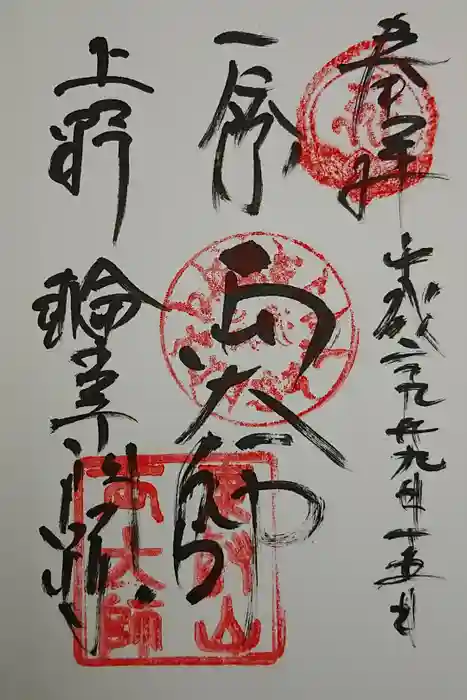 奉拝
平成二十九年九月十五日
両大師
上野
輪王寺門跡
東叡山
両大師